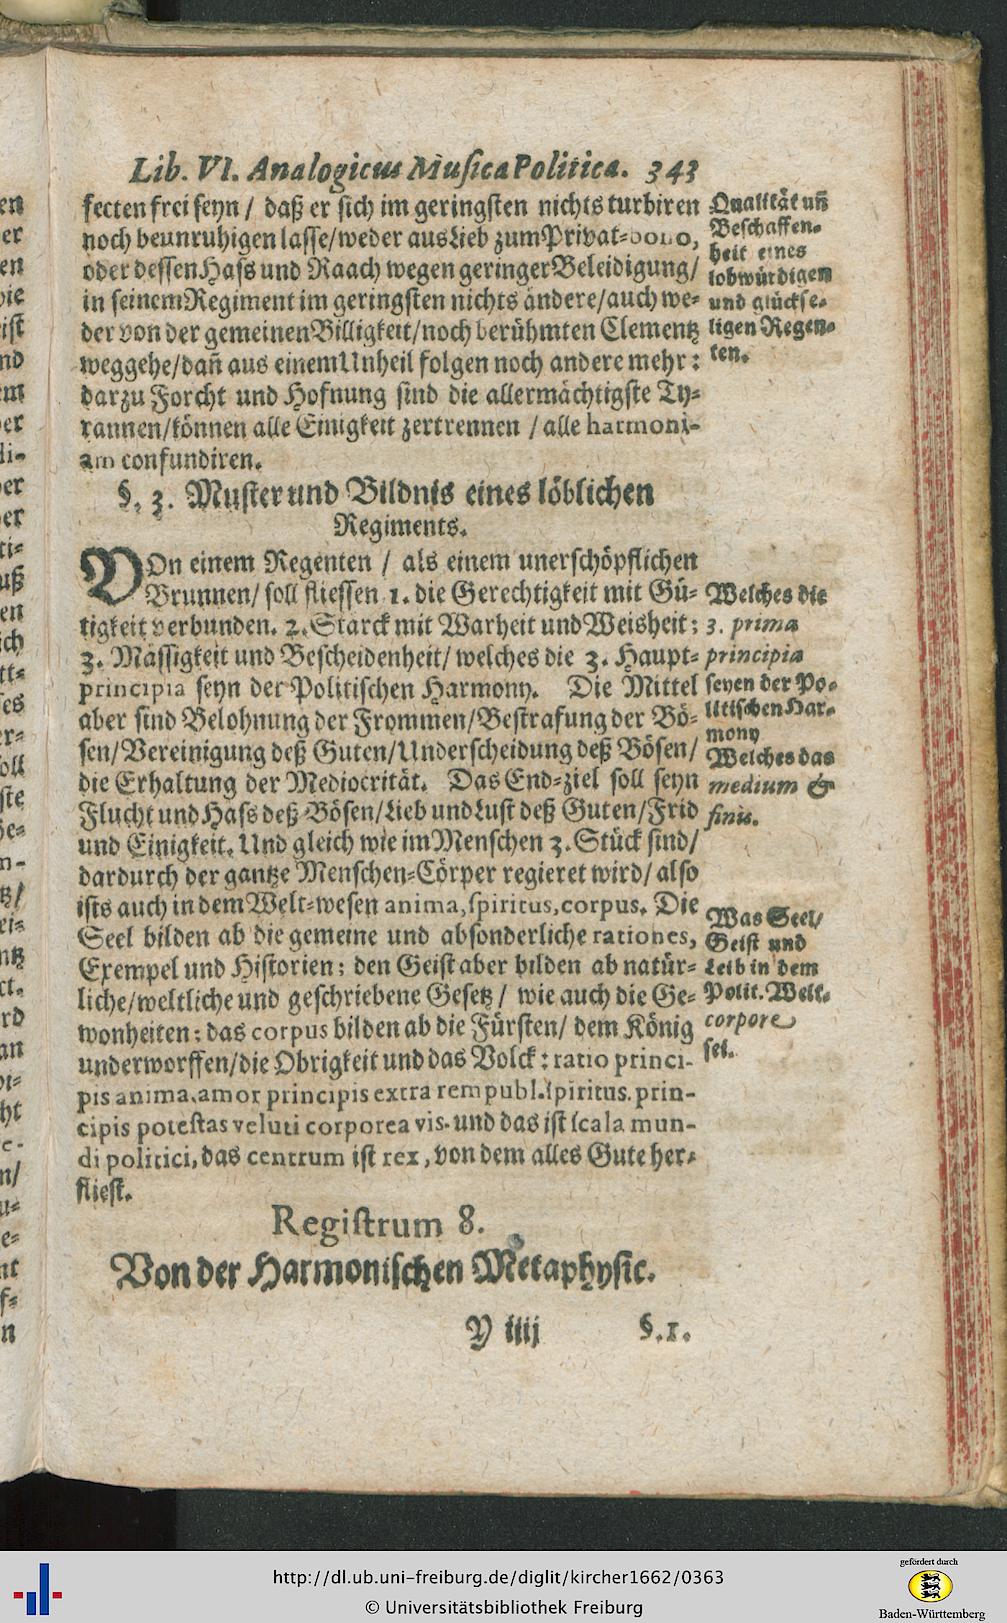 Lib. VI. Analogicus Musica Politica. 343
fecten frei seyn / daß er sich im geringsten nichts turbiren
noch beunruhigen lasse/weder aus Lieb zum Privat-bono,
oder dessen Hass und Raach wegen geringer Beleidigung/
in seinem Regiment im geringsten nichts ändere/auch we-
der von der gemeinen Billigkeit/noch berühmten Clementz
weggehe/dañ aus einem Unheil folgen noch andere mehr:
darzu Forcht und Hofnung sind die allermächtigste Ty-
rannen/können alle Einigkeit zertrennen / alle harmoni-
am confundiren.
Qualität uñ
Beschaffen-
heit eines
lobwürdigen
und glückse-
ligen Regen-
ten.
§. 3. Muster und Bildnis eines löblichen
Regiments.
VOn einem Regenten / als einem unerschöpflichen
Brunnen/ soll fliessen 1. die Gerechtigkeit mit Gü-
tigkeit verbunden. 2. Starck mit Warheit und Weisheit:
3. Mässigkeit und Bescheidenheit/ welches die 3. Haupt-
principia seyn der Politischen Harmony. Die Mittel
aber sind Belohnung der Frommen/Bestrafung der Bö-
sen/Vereinigung deß Guten/Underscheidung deß Bösen/
die Erhaltung der Mediocrität. Das End-ziel soll seyn
Flucht und Hass deß Bösen/Lieb und Lust deß Guten/Frid
und Einigkeit. Und gleich wie im Menschen 3. Stück sind/
dardurch der gantze Menschen-Cörper regieret wird/ also
ists auch in dem Welt-wesen anima, spiritus, corpus. Die
Seel bilden ab die gemeine und absonderliche rationes,
Exempel und Historien: den Geist aber bilden ab natür-
liche/weltliche und geschriebene Gesetz/ wie auch die Ge-
wonheiten: das corpus bilden ab die Fürsten/ dem König
underworffen/die Obrigkeit und das Volck: ratio princi-
pis anima, amor principis extra rem publ. spiritus. prin-
cipis potestas veluti corporea vis. und das ist scala mun-
di politici, das centrum ist rex, von dem alles Gute her-
fliest.
Welches die
3. prima
principia
seyen der Po-
litischen Har-
mony
Welches das
medium &
finis.
Was Seel/
Geist und
Leib in dem
Polit. Welt-
corpore
sei.
Registrum 8.
Von der Harmonischen Metaphysic.
Y iiij §.1.
http://dl.ub.uni-freiburg.de/diglit/kircher1662/0363
© Universitätsbibliothek Freiburg
gefördert durch
Baden-Württemberg